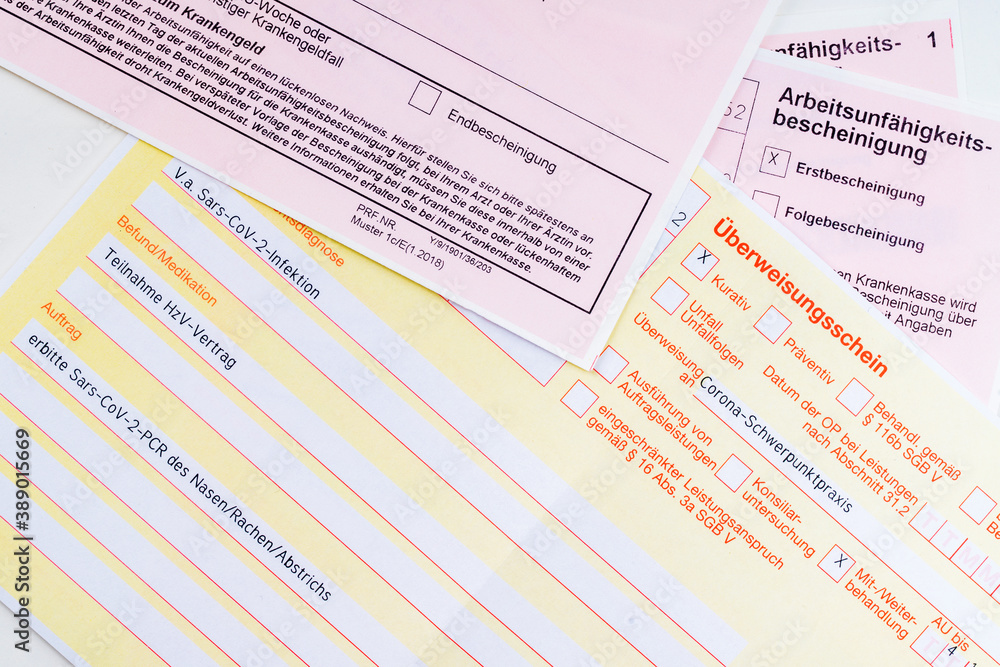 -Woche oder
stiger Krankengeldfall
Endbescheinigung
zum Krankengeld
der Arbeitsunfähigkeit auf einen lückenlosen Nachweis. Hierfür stellen Sie sich bitte spätestens an
letzten Tag der aktuellen Arbeitsunfähigkeitsbescheinigung folgt, bei Ihrem Arzt oder Ihrer Ärztin vor.
Ihre Ärztin Ihnen die Bescheinigung für die Krankenkasse aushändigt, müssen Sie diese innerhalb von einer
Krankenkasse weiterleiten. Bei verspäteter Vorlage der Bescheinigung bei der Krankenkasse oder lückenhaftem
der Arbeitsunfähigkeit droht Krankengeldverlust. Weitere Informationen erhalten Sie bei Ihrer Krankenkasse.
PRF.NR.
Y/9/1901/36/203
Muster 1c/E(1.2018)
nfähigkeits- 1
52
Arbeitsunfähigkeits-
bescheinigung
X Erstbescheinigung
Folgebescheinigung
en Krankenkasse wird
Bescheinigung über
it Angaben
2
Überweisungsschein
X Kurativ
Präventiv
Behandl. gemäß
§ 116b SGB V
Unfall
Unfallfolgen
Datum der OP bei Leistungen
nach Abschnitt 31.2
T T M M
Überweisung
an
Corona-Schwerpunktpraxis
Ausführung von
Auftragsleistungen
Konsiliar-
untersuchung
X Mit-/Weiter-
behandlung
eingeschränkter Leistungsanspruch
gemäß § 16 Abs. 3a SGB V
AU bis
4
tsdiagnose
V.a. Sars-CoV-2-Infektion
Befund/Medikation
Teilnahme HzV-Vertrag
Auftrag
erbitte Sars-CoV-2-PCR des Nasen/Rachen/Abstrichs
Adobe Stock | #389015669